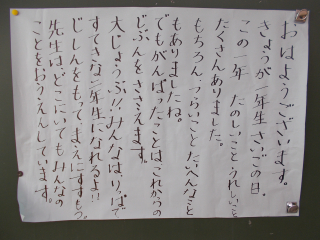 おはようございます。
きょうが一年生さいごの日。
この一年 たのしいこと、うれしいこと
たくさんありました。
もちろん、つらいこと、たいへんなこと
もありましたね。
でもがんばったことは、これからの
じぶんを、ささえます。
大じょうぶ!!みんなはりっぱで
すてきな二年生になれるよ!!
じしんをもって、まえにすすもう。
先生は、どこにいてもみんなの
ことをおうえんしています。